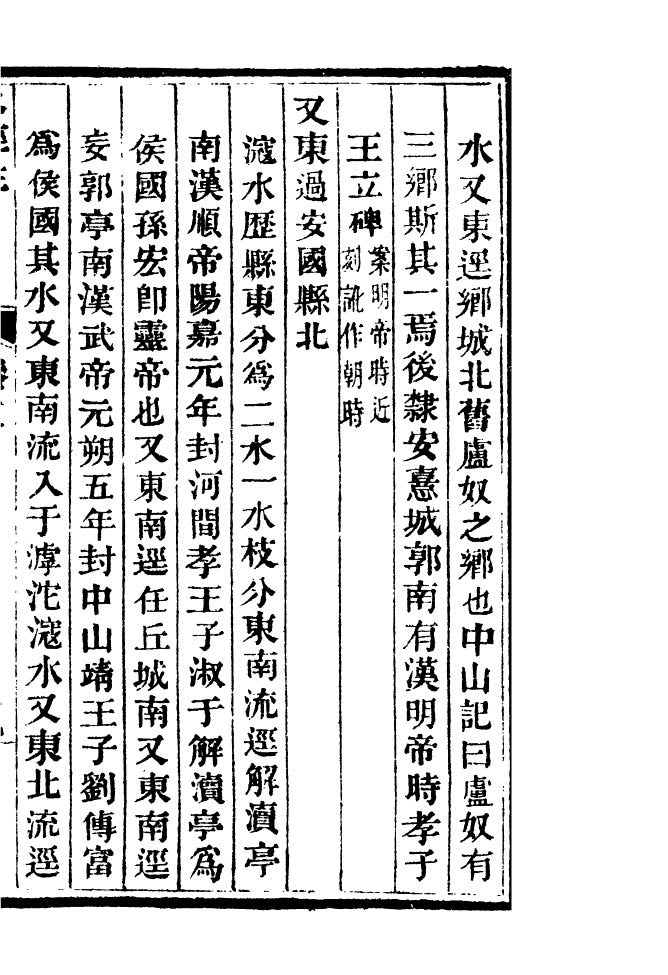 水又東逕鄉城北舊盧奴之鄉也中山記曰盧奴有
三鄉斯其一焉後隸安憙城郭南有漢明帝時孝子
王立碑案明帝時近刻訛作朝時
又東過安國縣北
滱水歷縣東分爲二水一水枝分東南流逕解瀆亭
南漢順帝陽嘉元年封河間孝王子淑于解瀆亭爲
侯國孫宏卽靈帝也又東南逕任丘城南又東南逕
安郭亭南漢武帝元朔五年封中山靖王子劉傳富
爲侯國其水又東南流入于滹沱滱水又東北流逕